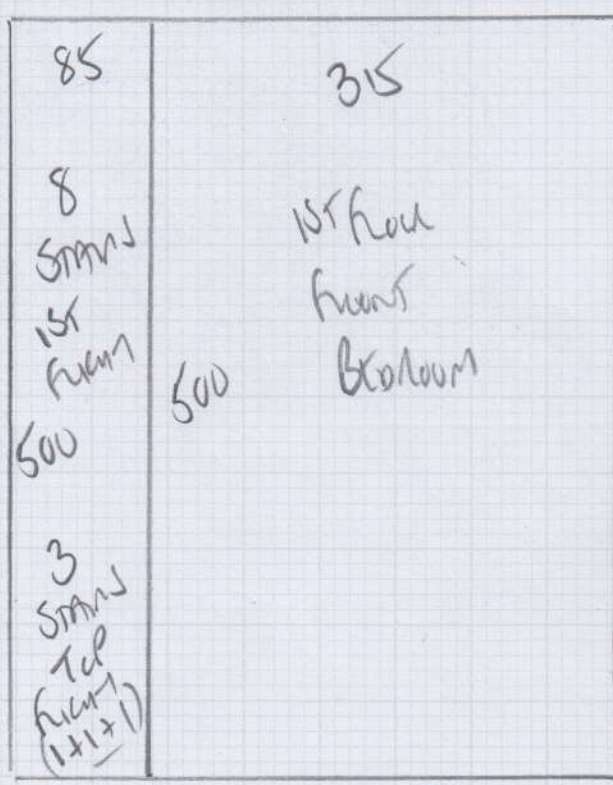 85
8
STAIRS
1ST
FLIGHT
500
3
STAIRS
TOP
FLIGHT
(1+1+1)
315
1ST FLOOR
FRONT
BEDROOM
500